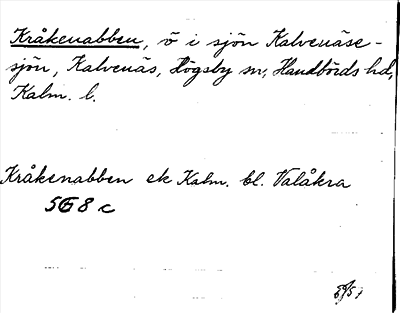 Kråkenabben, ö i sjön Kalvenäse-
sjön, Kalvenäs, Högsby sn, Handbörds hd,
Kalm. l.
Kråkenabben ek Kalm. bl. Valåkra
5G8c